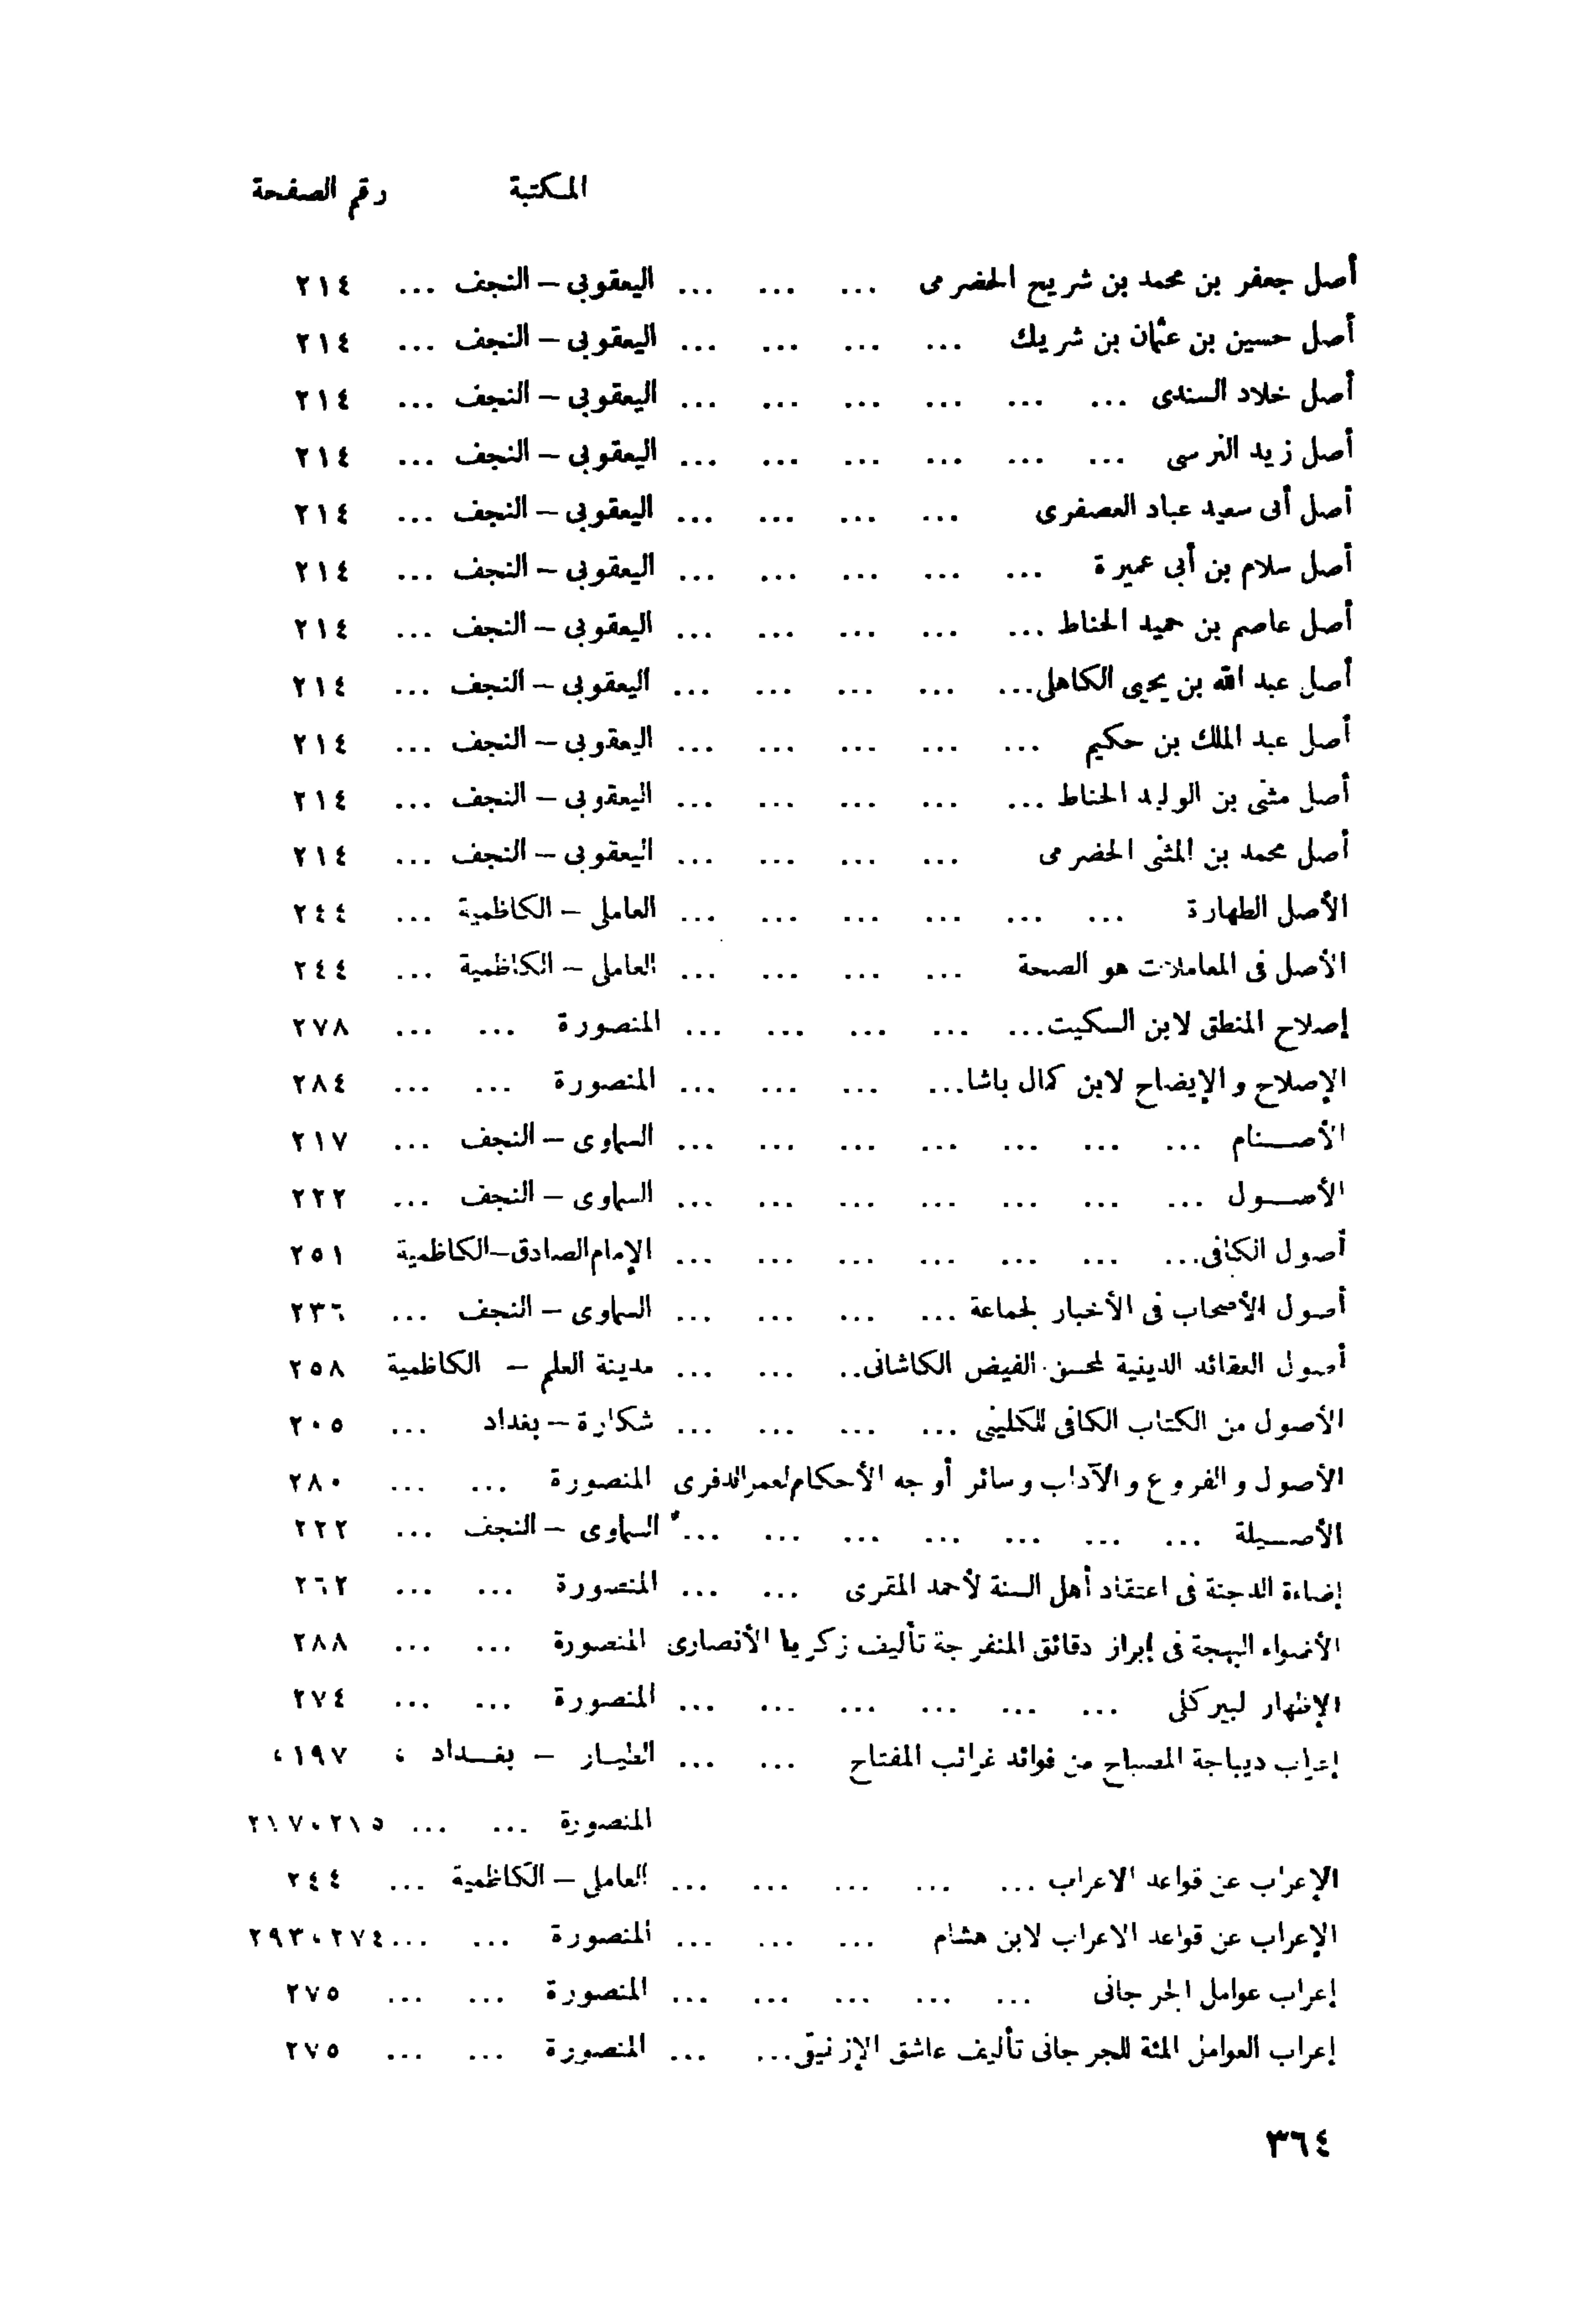 المكتبة رقم الصفحة
أصل جعفر بن محمد بن شريح الحضرمى ... ... ... اليعقوبى – النجف ... ٢١٤
أصل حسين بن عثمان بن شريك ... ... ... ... اليعقوبى – النجف ... ٢١٤
أصل خلاد السندى ... ... ... ... ... ... اليعقوبى – النجف ... ٢١٤
أصل زيد النرسى ... ... ... ... ... ... اليعقوبى – النجف ... ٢١٤
أصل أبى سعيد عباد العصفرى ... ... ... ... اليعقوبى – النجف ... ٢١٤
أصل سلام بن أبى عميرة ... ... ... ... ... اليعقوبى – النجف ... ٢١٤
أصل عاصم بن حميد الحناط ... ... ... ... ... اليعقوبى – النجف ... ٢١٤
أصل عبد الله بن يحيى الكاهلى... ... ... ... ... اليعقوبى – النجف ... ٢١٤
أصل عبد الملك بن حكيم ... ... ... ... ... اليعقوبى – النجف ... ٢١٤
أصل مثنى بن الوليد الحناط ... ... ... ... ... اليعقوبى – النجف ... ٢١٤
أصل محمد بن المثنى الحضرمى ... ... ... ... اليعقوبى – النجف ... ٢١٤
الأصل الطهارة ... ... ... ... ... ... العاملى – الكاظمية ... ٢٤٤
الأصل فى المعاملات هو الصحة ... ... ... ... العاملى – الكاظمية ... ٢٤٤
إصلاح المنطق لابن السكيت... ... ... ... ... المنصورة ... ... ٢٧٨
الإصلاح والإيضاح لابن كمال باشا... ... ... ... المنصورة ... ... ٢٨٤
الأصـــنام ... ... ... ... ... ... ... السماوى – النجف ... ٢١٧
الأصـــول ... ... ... ... ... ... ... السماوى – النجف ... ٢٢٢
أصول الكافى... ... ... ... ... ... ... الإمام الصادق–الكاظمية ٢٥١
أصول الأصحاب فى الأخبار لجماعة ... ... ... ... السماوى – النجف ... ٢٣٦
أصول العقائد الدينية لمحسن الفيض الكاشانى.. ... ... مدينة العلم – الكاظمية ٢٥٨
الأصول من الكتاب الكافى للكلينى ... ... ... ... شكارة – بغداد ... ٢٠٥
الأصول والفروع والآداب وسائر أوجه الأحكام لعمر الدفرى المنصورة ... ... ٢٨٠
الأصـــيلة ... ... ... ... ... ... ... السماوى – النجف ... ٢٢٢
إضاءة الدجنة فى اعتقاد أهل السنة لأحمد المقرى ... ... المنصورة ... ... ٢٦٢
الأضواء البهجة فى إبراز دقائق المنفرجة تأليف زكريا الأنصارى المنصورة ... ... ٢٨٨
الإظهار لبيركلى ... ... ... ... ... ... المنصورة ... ... ٢٧٤
إعراب ديباجة المصباح من فوائد غرائب المفتاح ... ... الطيـار – بغـــداد ، ١٩٧،
المنصورة ... ... ٢١٧،٢١٥
الإعراب عن قواعد الاعراب ... ... ... ... ... العاملى – الكاظمية ... ٢٤٤
الإعراب عن قواعد الاعراب لابن هشام ... ... ... المنصورة ... ...٢٩٣،٢٧٤
إعراب عوامل الجرجانى ... ... ... ... ... المنصورة ... ... ٢٧٥
إعراب العوامل المئة للجرجانى تأليف عاشق الإزنيقى... ... المنصورة ... ... ٢٧٥
٣٦٤